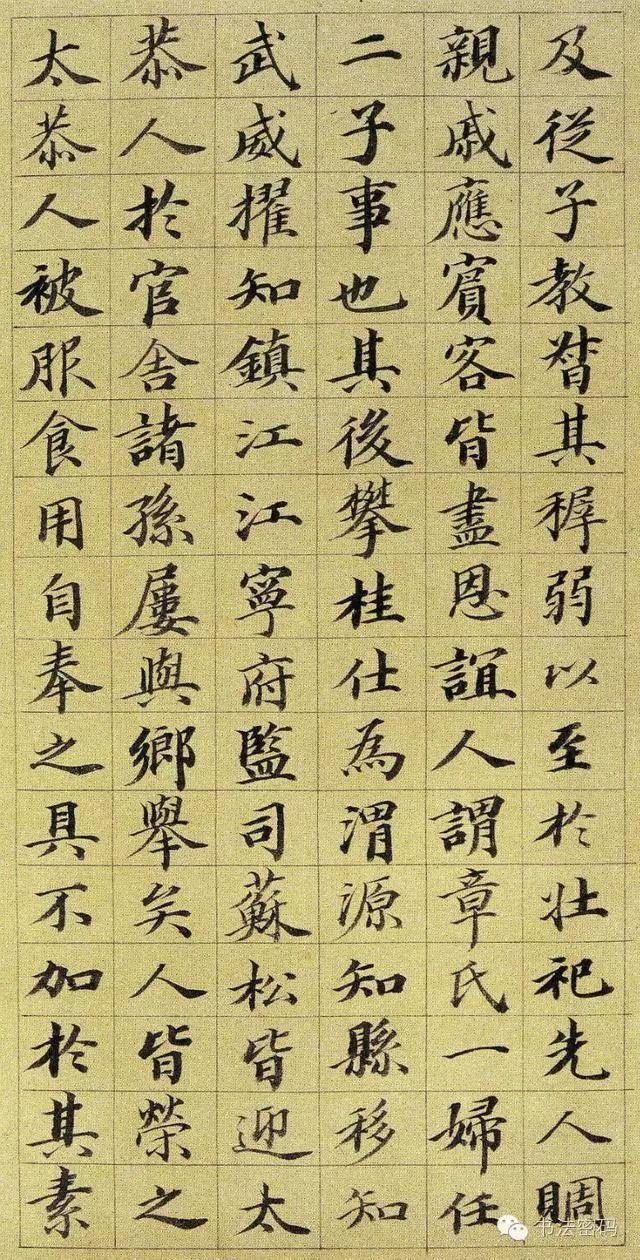 及從子教督其穉弱以至於壯祀先人賙
親戚應賓客皆盡恩誼人謂章氏一婦任
二子事也其後攀桂仕為渭源知縣移知
武威擢知鎮江江寧府監司蘇松皆迎太
恭人於官舍諸孫屢與鄉舉矣人皆榮之
太恭人被服食用自奉之具不加於其素
书法密码